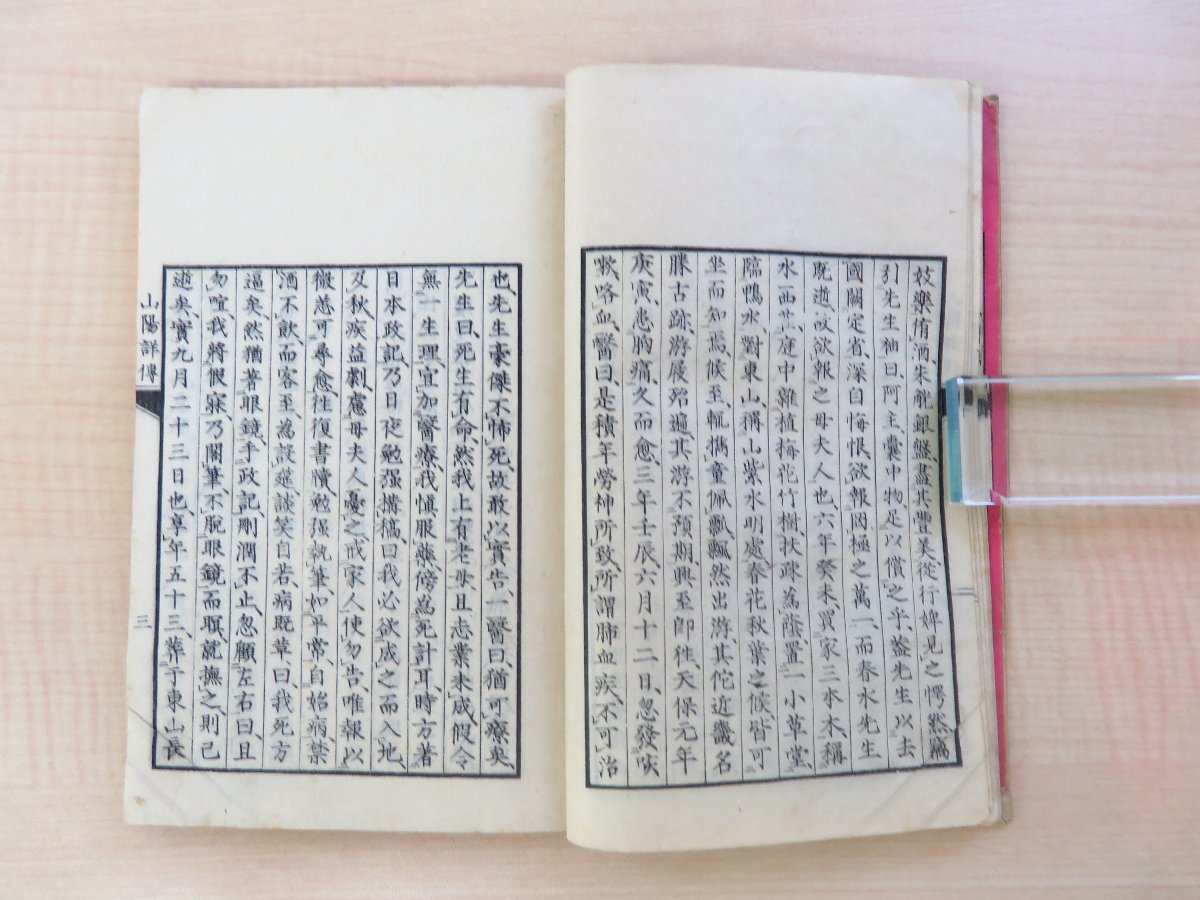 妓樂侑酒、朱觥銀盤盡其豐美、從行婢見之愕然、竊
引先生袖曰、阿主囊中物、足以償之乎、蓋先生以去
國闕定省、深自悔恨、欲報罔極之萬一、而春水先生
既逝、故欲報之母夫人也、六年癸未、買家三本木、稱
水西莊、庭中雜植梅花竹樹、扶疎為蔭、置一小草堂、
臨鴨水、對東山、稱山紫水明處、春花秋葉之候、皆可
坐而知焉、候至、輒攜童佩瓢、飄然出游、其佗近畿名
勝古跡、游屐殆遍、其游不預期、興至即往、天保元年
庚寅、患胸痛、久而愈、三年壬辰六月十二日、忽發咳
嗽、咯血、醫曰、是積年勞神所致、所謂肺血疾、不可治
也、先生豪傑不怖死、故敢以實告、一醫曰、猶可療矣、
先生曰、死生有命、然我上有老母、且志業未成、假令
無一生理、宜加醫療、我慎服藥、傍為死計耳、時方著
日本政記、乃日夜勉强搆稿曰、我必欲成之而入地、
及秋、疾益劇、慮母夫人憂之、戒家人使勿告、唯報以
微恙可尋愈、往復書牘、勉强執筆、如平常、自始病禁
酒不飲、而客至、為設筵、談笑自若、病既革、曰我死方
逼矣、然猶著眼鏡、手政記刪潤不止、忽顧左右曰、且
勿喧、我將假寐、乃閣筆、不脫眼鏡而瞑、就撫之、則已
逝矣、實九月二十三日也、享年五十三、葬于東山長
山陽詳傳
三